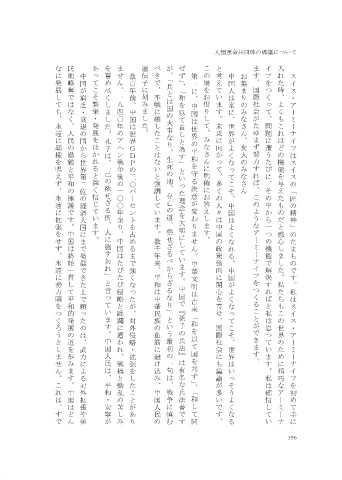 人類運命共同体の構築について
スイス・アーミーナイフはスイスの「匠の精神」のたまものです。私はスイス・アーミーナイフを初めて手に
入れた時、よくもこれほどの機能を与えたものだと感心しました。私たちもこの世界のために精巧なアーミーナ
イフをつくって、問題に遭うたびに、その中から一つの機能で解決すればと私は思っています。私は確信してい
ます。国際社会がたゆまず努力すれば、このようなアーミーナイフをつくることができます。
お集まりのみなさん、友人のみなさん
中国人は常に、世界がよくなってこそ、中国はよくなれる、中国がよくなってこそ、世界はいっそうよくなる
と考えています。未来に向かって、多くの人々は中国の政策動向に関心を寄せ、国際社会にも議論が多いです。
この場をお借りして、みなさんに明確にお答えします。
第一に、中国は世界の平和を守る決意が変わりません。中華文明は古来「和を以て国を邦ず」、「和して同
ぜず」、「和を以て貴しと為す」といった理念を大切にしています。中国で『孫子の兵法』は有名な兵法書です
が、「兵とは国の大事なり、死生の地、存亡の道、察せざるべからざるなり」という最初の一句は、戦争に慎む
べきで、不戦に越したことはないと強調しています。数千年来、平和は中華民族の血筋に融け込み、中国人民の
遺伝子に刻みました。
数百年前、中国は世界GDPの三〇パーセントを占めるまで強くなったが、対外侵略・拡張をしたことがあり
ません。一八四〇年のアヘン戦争後の一〇〇年余り、中国はたびたび侵略と蹂躙に遭われ、戦禍と動乱の苦しみ
を嘗め尽くしました。孔子は、「己の欲せざる所、人に施すなかれ」と言っています。中国人民は、平和・安寧が
あってこそ繁栄・発展をはかれると深く信じています。
中国が貧乏・衰退の国から世界第二位の経済大国にまで発展できた上で頼ったのは、武力による対外拡張や植
民地略奪ではなく、人民の勤勉と平和の擁護です。中国は終始一貫して平和的発展の道を歩みます。中国はどん
なに発展しても、永遠に覇権を唱えず、永遠に拡張をせず、永遠に勢力圏をつくろうとしません。これは、すで